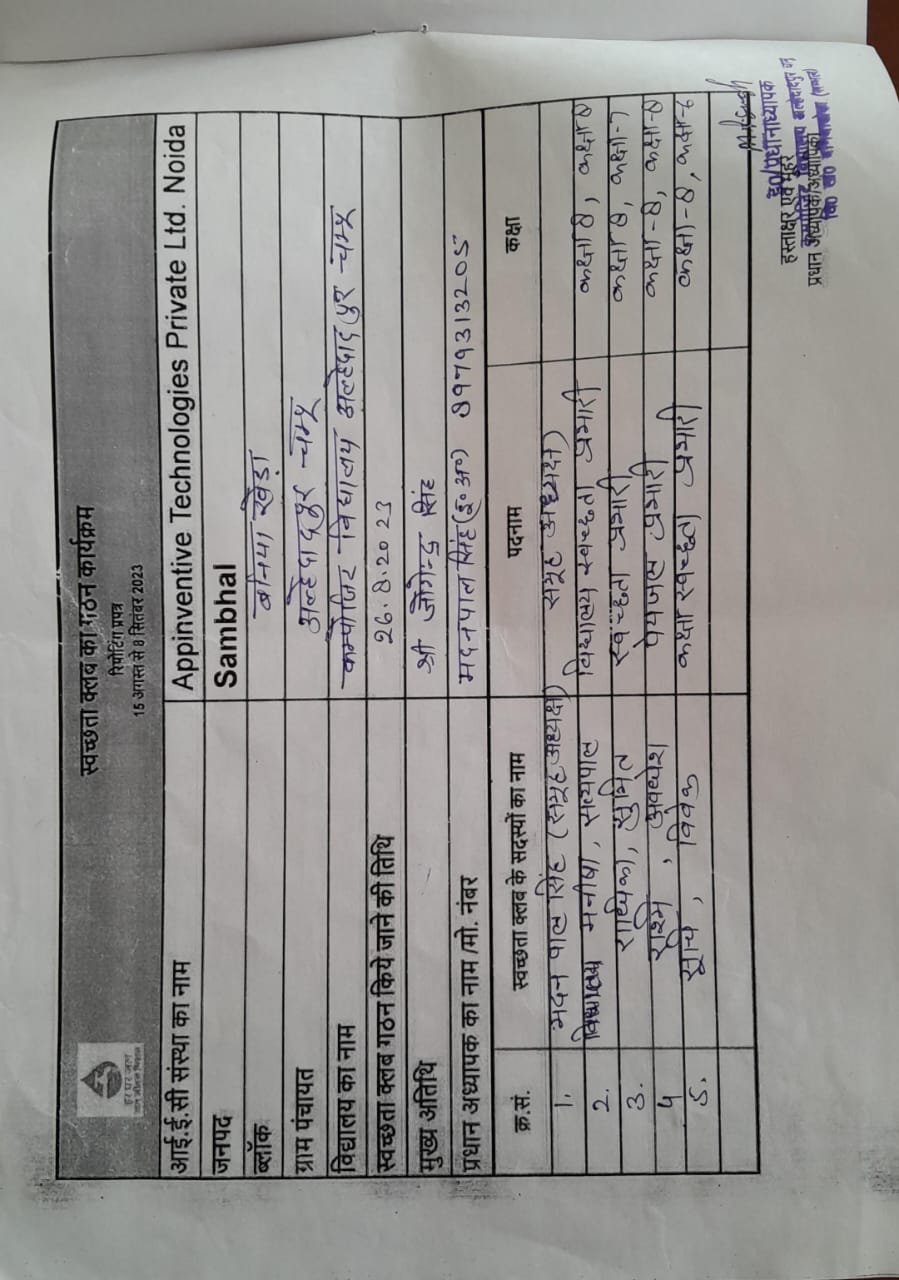 स्वच्छता क्लब का गठन कार्यक्रम
रिपोर्टिंग प्रपत्र
15 अगस्त से 8 सितंबर 2023
हर घर जल
जल जीवन मिशन
आई.ई.सी संस्था का नाम Appinventive Technologies Private Ltd. Noida
जनपद Sambhal
ब्लॉक बनिया खेड़ा
ग्राम पंचायत अल्हेदादपुर चम्पू
विद्यालय का नाम कम्पोजिट विद्यालय अल्हेदादपुर चम्पू
स्वच्छता क्लब गठन किये जाने की तिथि 26.8.2023
मुख्य अतिथि श्री जोगेन्द्र सिंह
प्रधान अध्यापक का नाम /मो. नंबर मदनपाल सिंह (इ०अ०) 8979313205
क्र.सं. स्वच्छता क्लब के सदस्यों का नाम पदनाम कक्षा
1. मदन पाल सिंह (समूह अध्यक्ष) समूह अध्यक्ष)
2. मनीषा, सत्यपाल विद्यालय स्वच्छता प्रभारी कक्षा 8, कक्षा 8
3. राधिका, सुमित स्वच्छता प्रभारी कक्षा 8, कक्षा-7
4 रश्मि, अवधेश पेयजल प्रभारी कक्षा-8, कक्षा-8
5. विवेक कक्षा स्वच्छता प्रभारी कक्षा-8, कक्षा-८
इ०/प्रधानाध्यापक
हस्ताक्षर एवं मोहर
प्रधान अध्यापक/अध्यापिका